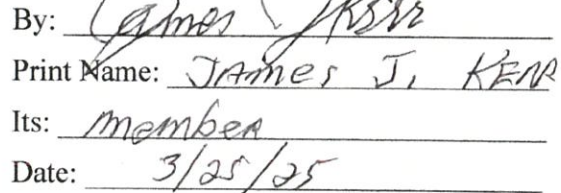 By: James J Kerr
Print Name: JAmes J. KERR
Its: member
Date: 3/25/25